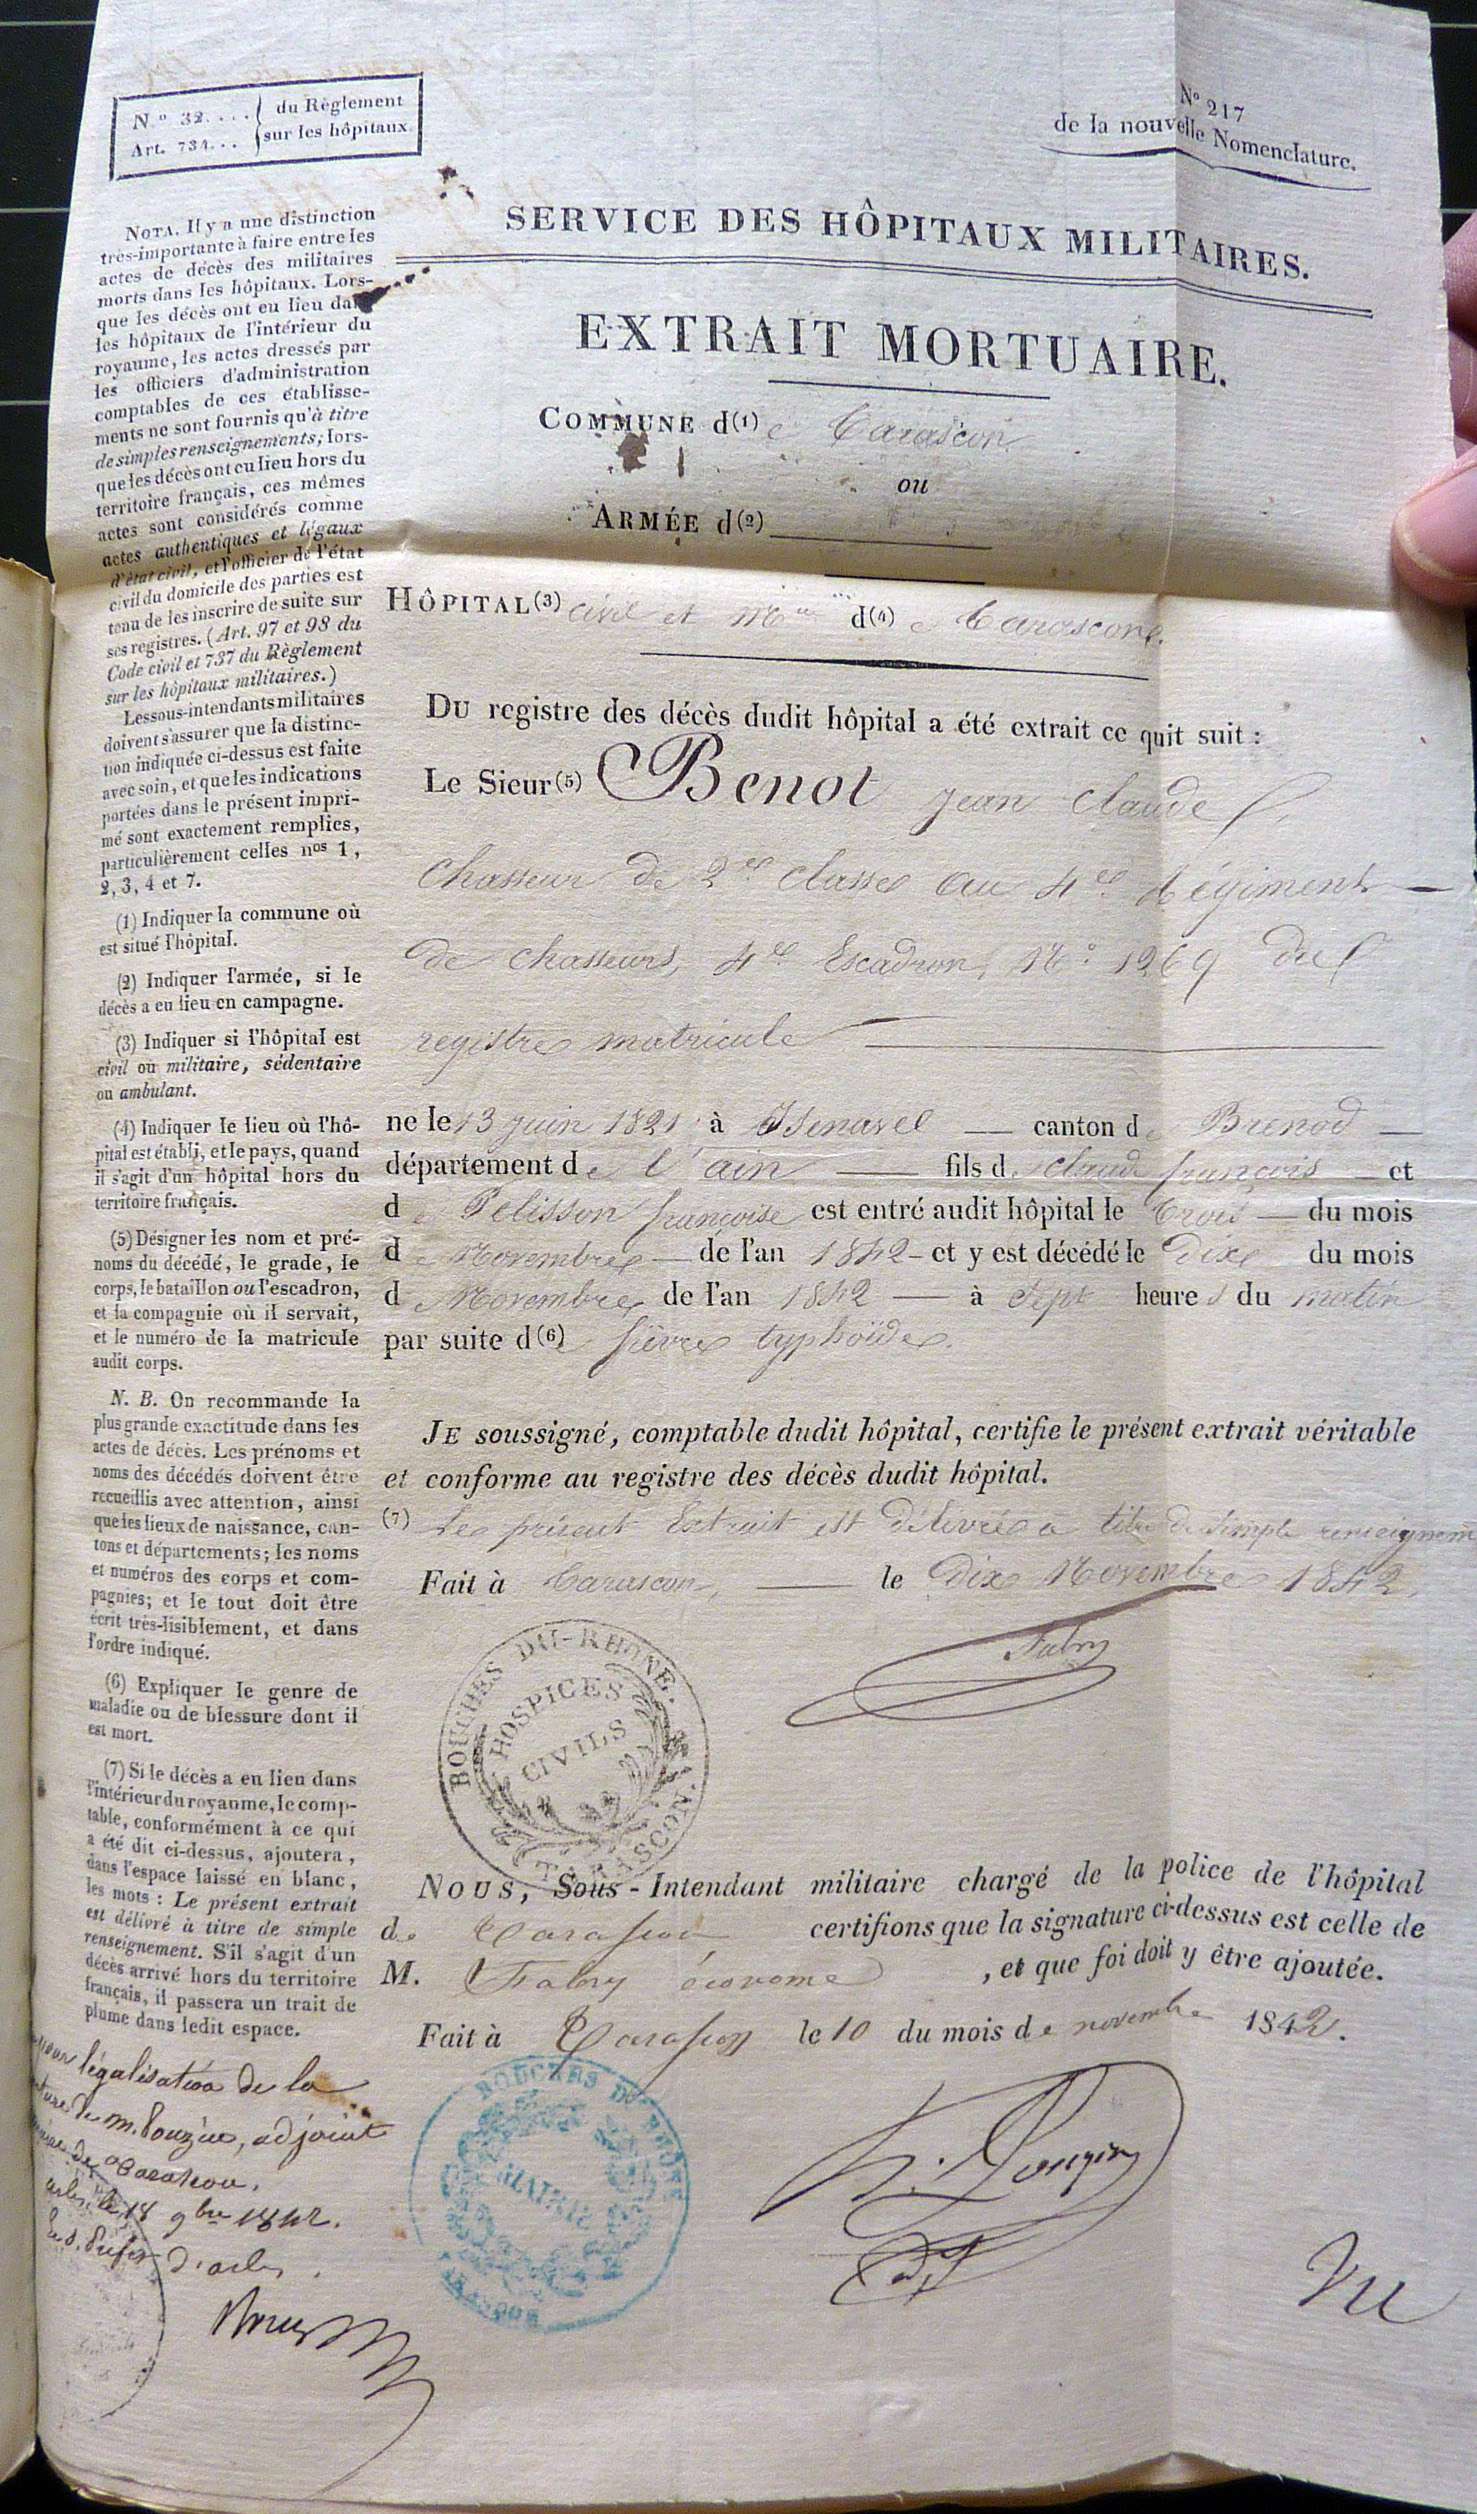 N.º 32.... du Règlement
Art. 734... sur les hôpitaux.
Nº 217
de la nouvelle Nomenclature.
SERVICE DES HÔPITAUX MILITAIRES.
EXTRAIT MORTUAIRE.
COMMUNE d(1)e Tarascon
ou
ARMÉE d(2)
HÔPITAL(3) civil et Mre d(4)e Tarascon.
DU registre des décès dudit hôpital a été extrait ce quit suit :
Le Sieur(5) Benot jean Claude
Chasseur de 2e classe au 4e Régiment
de chasseurs, 4e Escadron, Nº 1269 du
registre matricule
ne le 13 juin 1821 à Izenavel canton de Brenod
département de l'ain fils de claude françois et
de Pelisson françoise est entré audit hôpital le trois du mois
de Novembre de l'an 1842 et y est décédé le dix du mois
de Novembre de l'an 1842 à sept heures du matin
par suite d(6)e fièvre typhoïde.
JE soussigné, comptable dudit hôpital, certifie le présent extrait véritable
et conforme au registre des décès dudit hôpital.
(7) Le présent Extrait est délivré à titre de simple renseignem
Fait à Tarascon, le dix Novembre 1842.
Fabry
BOUCHES DU-RHONE.
HOSPICES
CIVILS
TARASCON.
NOUS, Sous-Intendant militaire chargé de la police de l'hôpital
de Tarascon, certifions que la signature ci-dessus est celle de
M. Fabry économe , et que foi doit y être ajoutée.
Fait à Tarascon le 10 du mois de novembre 1842.
BOUCHES DU RHÔNE
MAIRIE
Vu
NOTA. Il y a une distinction
très-importante à faire entre les
actes de décès des militaires
morts dans les hôpitaux. Lors-
que les décès ont eu lieu dans
les hôpitaux de l'intérieur du
royaume, les actes dressés par
les officiers d'administration
comptables de ces établisse-
ments ne sont fournis qu'à titre
de simples renseignements; lors-
que les décès ont eu lieu hors du
territoire français, ces mêmes
actes sont considérés comme
actes authentiques et légaux
d'état civil, et l'officier de l'état
civil du domicile des parties est
tenu de les inscrire de suite sur
ses registres. (Art. 97 et 98 du
Code civil et 737 du Règlement
sur les hôpitaux militaires.)
Les sous-intendants militaires
doivent s'assurer que la distinc-
tion indiquée ci-dessus est faite
avec soin, et que les indications
portées dans le présent impri-
mé sont exactement remplies,
particulièrement celles nos 1,
2, 3, 4 et 7.
(1) Indiquer la commune où
est situé l'hôpital.
(2) Indiquer l'armée, si le
décès a eu lieu en campagne.
(3) Indiquer si l'hôpital est
civil ou militaire, sédentaire
ou ambulant.
(4) Indiquer le lieu où l'hô-
pital est établi, et le pays, quand
il s'agit d'un hôpital hors du
territoire français.
(5) Désigner les nom et pré-
noms du décédé, le grade, le
corps, le bataillon ou l'escadron,
et la compagnie où il servait,
et le numéro de la matricule
audit corps.
N. B. On recommande la
plus grande exactitude dans les
actes de décès. Les prénoms et
noms des décédés doivent être
recueillis avec attention, ainsi
que les lieux de naissance, can-
tons et départements; les noms
et numéros des corps et com-
pagnies; et le tout doit être
écrit très-lisiblement, et dans
l'ordre indiqué.
(6) Expliquer le genre de
maladie ou de blessure dont il
est mort.
(7) Si le décès a eu lieu dans
l'intérieur du royaume, le comp-
table, conformément à ce qui
a été dit ci-dessus, ajoutera,
dans l'espace laissé en blanc,
les mots : Le présent extrait
est délivré à titre de simple
renseignement. S'il s'agit d'un
décès arrivé hors du territoire
français, il passera un trait de
plume dans ledit espace.
légalisation de la
de m. Pouzin, adjoint
de Tarascon.
arles, le 18 9bre 1842.
d'arles.